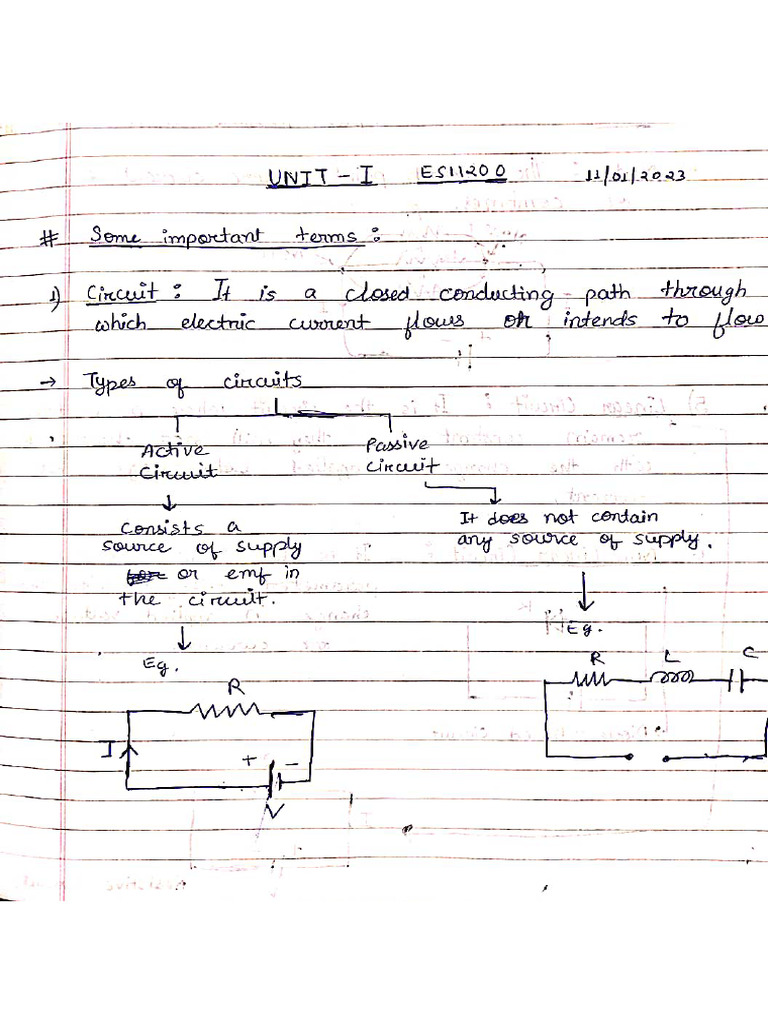 UNIT - I ES11200 11/01/2023
# Some important terms :
1) Circuit : It is a closed conducting path through
which electric current flows or intends to flow
→ Types of circuits
Active Circuit
Passive Circuit
Consists a
source of supply
or emf in
the circuit.
Eg.
It does not contain
any source of supply.
Eg.
R
I
+ -
V
R L C